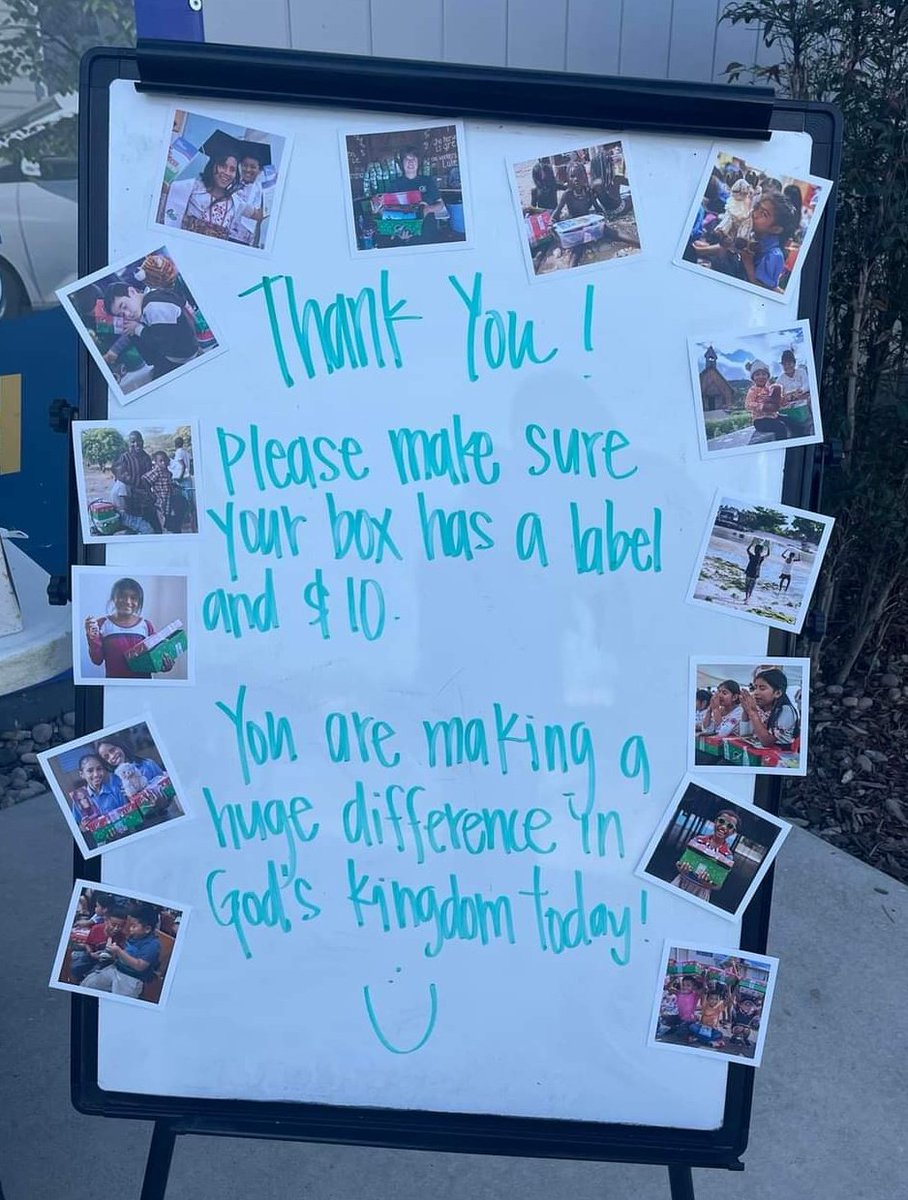 Thank You!
Please make sure
your box has a label
and $10.
You are making a
huge difference in
God's kingdom today!